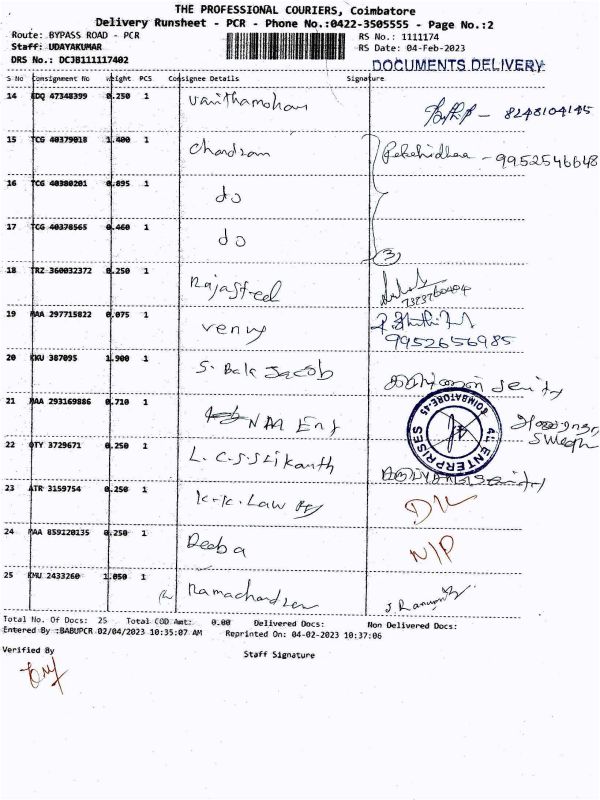 THE PROFESSIONAL COURIERS, Coimbatore
Delivery Runsheet - PCR - Phone No.:0422-3505555 - Page No.:2
Route: BYPASS ROAD - PCR
RS No.: 1111174
Staff: UDAYAKUMAR
RS Date: 04-Feb-2023
DRS No.: DCJB111117402
DOCUMENTS DELIVERY
S No Consignment No Weight PCS Consignee Details Signature
14 EDQ 47348399 0.250 1 Vanithamohan 8248104145
15 TCG 40379018 1.400 1 Chandran 9952546648
16 TCG 40380201 0.895 1 do
17 TCG 40378565 0.460 1 do
3
18 TRZ 360032372 0.250 1 Rajasteel
7373760404
19 MAA 297715822 0.075 1 venny
9952656985
20 KKU 387095 1.900 1 S. Bala Jacob
21 MAA 293169886 0.710 1 NAA Ent
4U ENTERPRISES COIMBATORE-45
22 OTY 3729671 0.250 1 L.C.S.Srikanth
23 ATR 3159754 0.250 1 K.K. Law
24 MAA 859120135 0.250 1 Deeba N/P
25 KMU 2433260 1.050 1 Ramachandran
Total No. Of Docs: 25 Total COD Amt: 0.00 Delivered Docs: Non Delivered Docs:
Entered By :BABUPCR 02/04/2023 10:35:07 AM Reprinted On: 04-02-2023 10:37:06
Verified By
Staff Signature